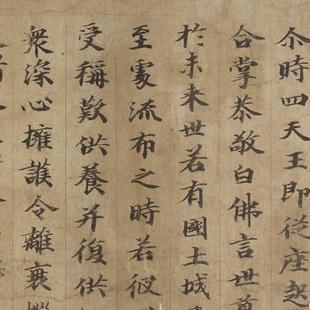 尒時四天王即從座起
合掌恭敬白佛言世尊
於未来世若有國土城
至處流布之時若彼
受稱歎供養并復供
衆深心擁護令離衰